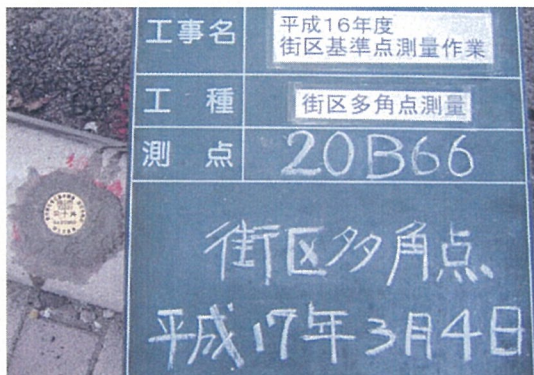 工事名
平成16年度
街区基準点測量作業
工種
街区多角点測量
測点
20B66
街区多角点
平成17年3月4日